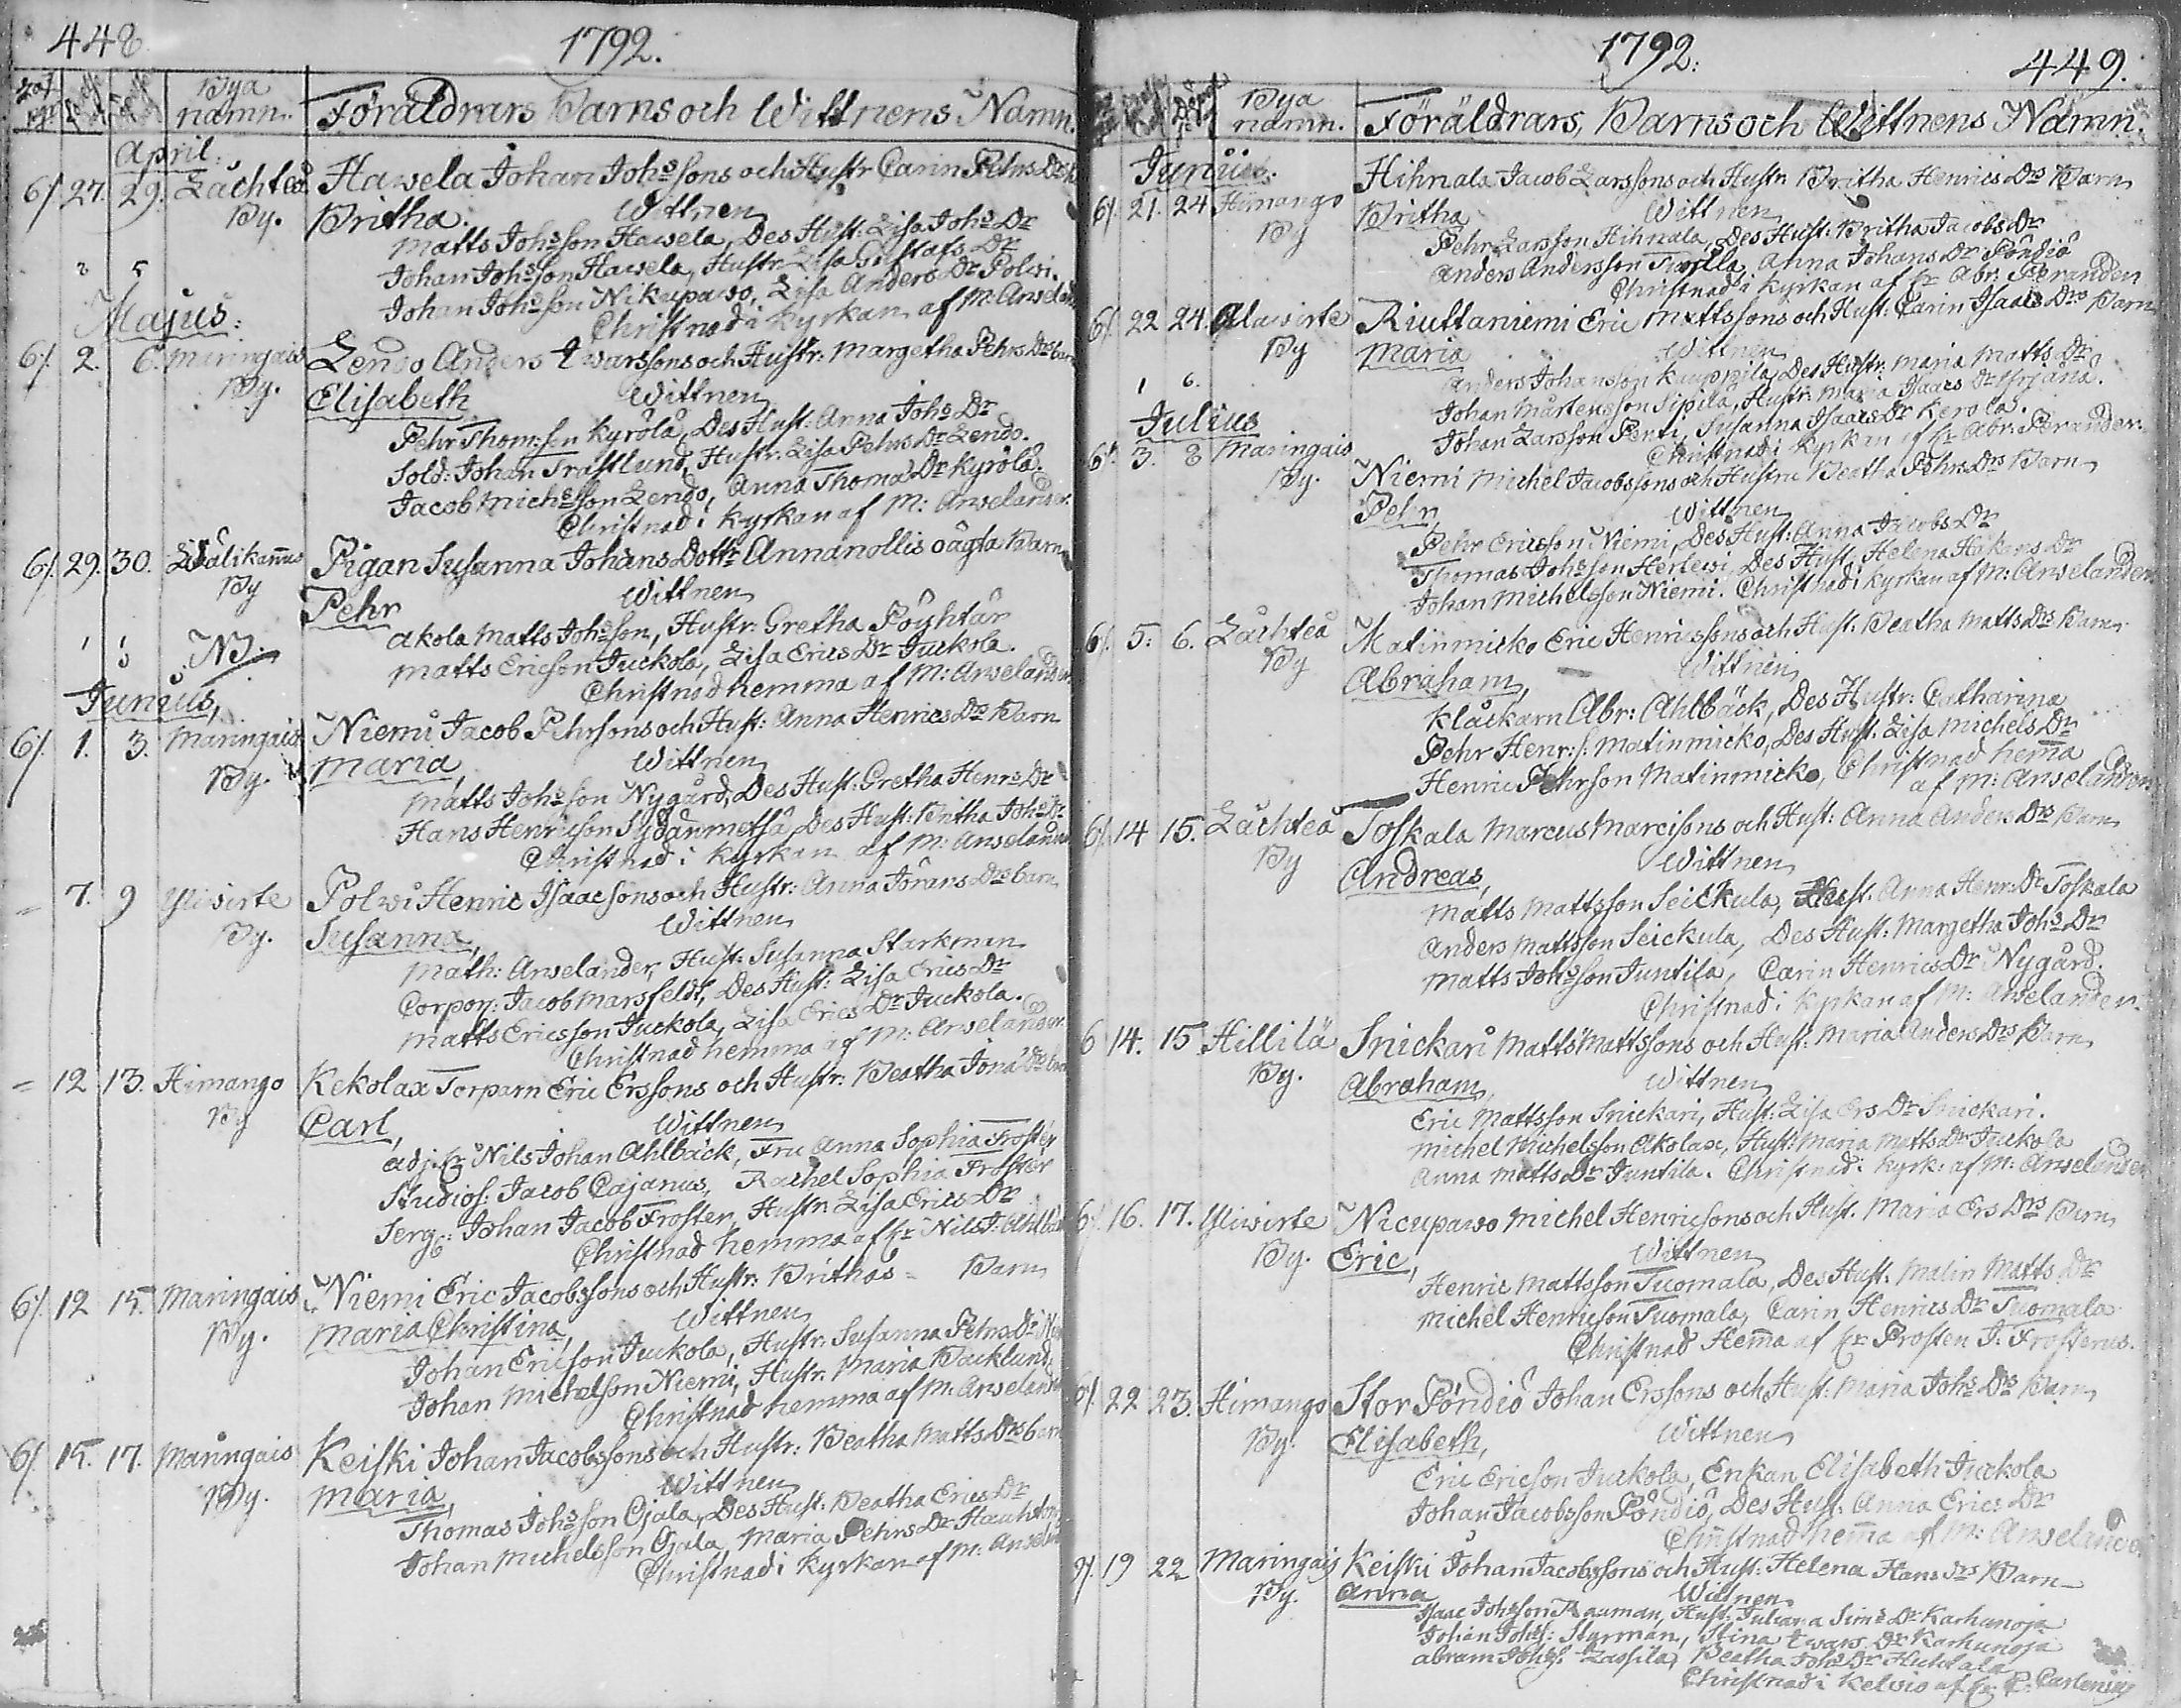 448
1792.
Bya
namn.
Föräldrars Barns och Wittnens Namn.
April.
6/. 27. 29. Låchteå Hawela Johan Johssons och Hustr Carin Pehrs Drs
By. Britha. Wittnen
Matts Johsson Hawela, Des Hust: Lisa Johs Dr
Johan Johsson Hawela, Hustr. Lisa Gustafs Dr
Johan Johsson Nikupawo, Lisa Anders Dr Polwi.
Christnad i kyrkan af M: Arwelander
Majus:
6/. 2. 6. Maringais Lendo Anders Iwarssons och Hustr: Margetha Pehrs Drs barn
By. Elisabeth Wittnen
Pehr Thom: son Kyrölä, Des Hust: Anna Johs Dr
Sold: Johan Trastlund, Hustr. Lisa Pehrs Dr Lendo.
Jacob Michsson Lendo, Anna Thomas Dr Kyrölä.
Christnad i kyrkan af M: Arwelander.
6/. 29. 30. Wälikannus Pigan Susanna Johans Dottr Annanollis oägta Barn
By Pehr Wittnen
Akola Matts Johsson, Hustr: Gretha Pöyhtär
NB. Matts Ericsson Juckola, Lisa Erics Dr Juckola.
Christnad hemma af M: Arwelander
Junius,
6/. 1. 3. Maringais Niemi Jacob Pehrsons och Hust: Anna Henrics Drs Barn
By. Maria Wittnen
Matts Johsson Nygård, Des Hust: Gretha Henrs Dr
Hans Henricson Sydänmetsä, Des Hust: Britha Johs Dr
Christnad i kyrkan af M: Arwelander
= 7. 9 Yliwirte Polwi Henric Isaacsons och Hustr: Anna Jörans Drs barn
By. Susanna, Wittnen
Math: Arwelander, Hust: Susanna Starkman
Corpor: Jacob Marsfeldt, Des Hust: Lisa Erics Dr
Matts Ericsson Juckola, Lisa Erics Dr Juckola.
Christnad hemma af M: Arwelander.
= 12 13. Himango Kekolax Torparn Eric Erssons och Hustr: Beatha Jona Drs
By Carl, Wittnen
Adj. Hr Nils Johan Ahlbäck, Fru Anna Sophia Froster
Studios: Jacob Cajanus, Rachel Sophia Froster
Serg: Johan Jacob Froster, Hustr: Lisa Erics Dr
Christnad hemma af Hr Nils J: Ahlbäck
6/. 12 15. Maringais Niemi Eric Jacobssons och Hustr: Brithas = Barn
By. Maria Christina, Wittnen
Johan Ericsson Juckola, Hustr: Susanna Pehrs Dr
Johan Michelson Niemi, Hustr. Maria Backlund.
Christnad hemma af M: Arwelander
6/. 15. 17. Maringais Keiski Johan Jacobssons och Hustr: Beatha Matts Drs barn
By. Maria, Wittnen
Thomas Johsson Ojala, Des Hust: Beatha Erics Dr
Johan Michelsson Ojala, Maria Pehrs Dr
Christnad i kyrkan af M: Arwelander
1792.
449.
Bya
namn.
Föräldrars, Barns och Wittnens Namn.
Junius.
6/. 21. 24 Himango Hihnala Jacob Larssons och Hustr. Britha Henrics Drs Barn
By Britha Wittnen
Pehr Larsson Hihnala, Des Hust: Britha Jacobs Dr
Anders Andersson, Anna Johans Dr Pöndiö
Christnad i kyrkan af Hr Abr. Peranden
6/. 22 24. Alawirte Riuttaniemi Eric Mattssons och Hust: Carin Isaacs Drs Barn
By Maria Wittnen
Anders Johansson Kauppila, Des Hustr: Maria Matts Dr
Johan Mårtensson Sipilä, Hustr: Maria Isaacs Dr
Johan Larsson Pertti, Susanna Isaacs Dr Kerola.
Christnad i kyrkan af Hr Abr: Perander.
Julius
6/. 3. 8 Maringais Niemi Michel Jacobssons och Hustru Beatha Pehrs Drs Barn
By. Pehr Wittnen
Pehr Ericsson Niemi, Des Hust: Anna Jacobs Dr
Thomas Johsson Herlewi, Des Hust: Helena Håkans Dr
Johan Michelsson Niemi. Christnad i kyrkan af M: Arwelander
6/. 5: 6. Låchteå Matinmicko Eric Henricssons och Hust: Beatha Matts Drs Barn
By Abraham, Wittnen
Klåckarn Abr: Ahlbäck, Des Hustr: Catharina
Pehr Henr: s: Matinmicko, Des Hust: Lisa Michels Dr
Henric Pehrson Matinmicko, Christnad hemma
af M: Arwelander
6/. 14 15. Låchteå Toskala Marcus Marcisons och Hust: Anna Anders Drs Barn
By Andreas, Wittnen
Matts Mattsson Seickula, Hust. Anna Henr: Dr Toskala
Anders Mattsson Seickula, Des Hust: Margetha Johs Dr
Matts Johsson Juntila, Carin Henrics Dr Nygård.
Christnad i kyrkan af M: Arwelander.
6 14. 15 Hillilä Snickari Matts Mattssons och Hust: Maria Anders Drs Barn
By. Abraham, Wittnen
Eric Mattsson Snickari, Hust: Lisa Ers Dr Snickari.
Michel Michelsson Akolax, Hust: Maria Matts Dr Juckola
Anna Matts Dr Juntila. Christnad i kyrk: af M: Arwelander.
6/. 16. 17. Yliwirte Nicupawo Michel Henricsons och Hust. Maria Ers Drs Barn
By. Eric, Wittnen
Henric Mattsson Tuomala, Des Hust. Malin Matts Dr
Michel Henricson Tuomala, Carin Henrics Dr Tuomala
Christnad Hemma af Hr Prosten J: Frosterus.
6/. 22 23. Himango Stor Pöndiö Johan Erssons och Hust: Maria Johs Drs Barn
By. Elisabeth, Wittnen
Eric Ericson Juckola, Enkan Elisabeth Juckola
Johan Jacobsson Pöndiö, Des Hust: Anna Erics Dr
Christnad hemma af M: Arwelander
9/. 19 22 Maringais Keiski Johan Jacobssons och Hust: Helena Hans Drs Barn
By. Anna Wittnen
Isaac Johsson Rauman, Hust: Juliana Sims Dr Karhunoja
Johan Johs: Styrman, Stina Iwars Dr Karhunoja
Abram Johs: Lassila, Beatha Johs Dr Huhtala
Christnad i Kelwio af Hr P: Carlenius